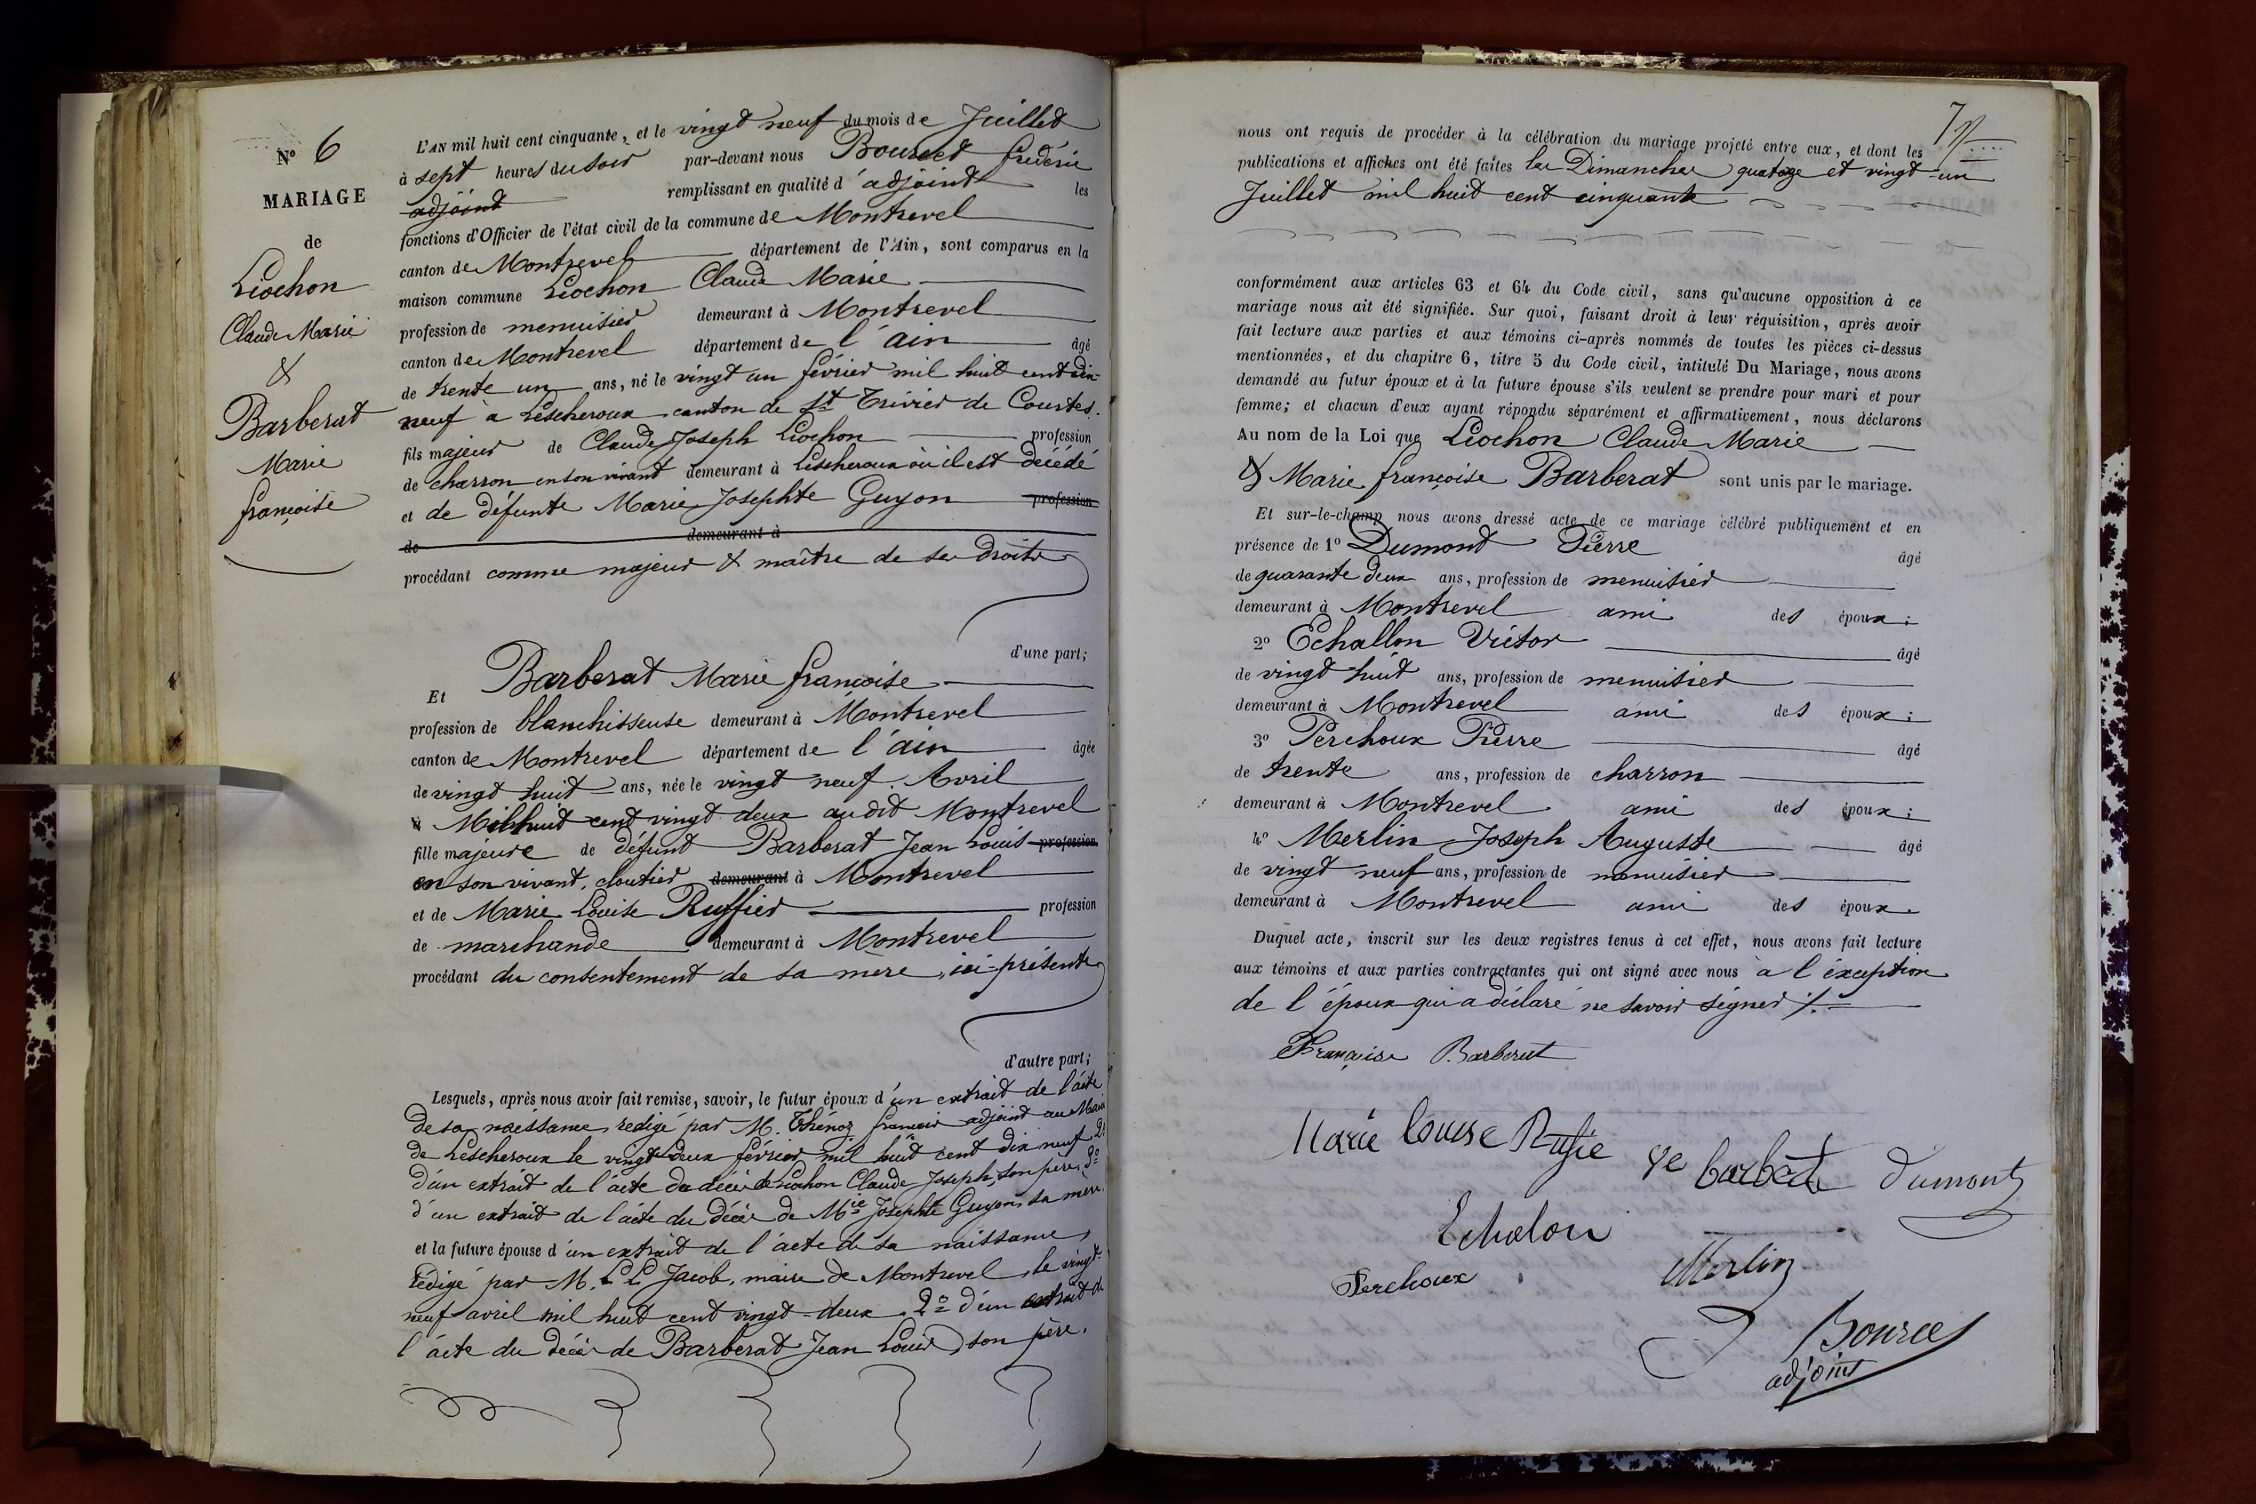 N° 6
MARIAGE
de
Liochon
Claude Marie
&
Barberat
Marie
françoise
L'AN mil huit cent cinquante, et le vingt neuf du mois de Juillet
à sept heures du soir par-devant nous Bourcet frédéric
adjoint remplissant en qualité d'adjoint les
fonctions d'Officier de l'état civil de la commune de Montrevel
canton de Montrevel département de l'Ain, sont comparus en la
maison commune Liochon Claude Marie
profession de menuisier demeurant à Montrevel
canton de Montrevel département de l'ain âgé
de trente un ans, né le vingt un février mil huit cent dix
neuf à Lescheroux canton de St Trivier de Courtes.
fils majeur de Claude Joseph Liochon profession
de charron en son vivant demeurant à Lescheroux où il est décédé
et de défunte Marie Josephte Guyon profession
de demeurant à
procédant comme majeur & maître de ses droits
d'une part;
Et Barberat Marie françoise
profession de blanchisseuse demeurant à Montrevel
canton de Montrevel département de l'ain âgée
de vingt huit ans, née le vingt neuf Avril
à Mil huit cent vingt deux audit Montrevel
fille majeure de défunt Barberat Jean Louis profession
en son vivant, cloutier demeurant à Montrevel
et de Marie Louise Ruffier profession
de marchande demeurant à Montrevel
procédant du consentement de sa mère, ici présente
d'autre part;
Lesquels, après nous avoir fait remise, savoir, le futur époux d'un extrait de l'acte
de sa naissance, rédigé par M. Thénoz françois adjoint au Maire
de Lescheroux le vingt deux février mil huit cent dix neuf 2°
d'un extrait de l'acte du décès de Liochon Claude Joseph, son père, 3°
d'un extrait de l'acte du décès de Mie Josephte Guyon, sa mère.
et la future épouse d'un extrait de l'acte de sa naissance,
rédigé par M. L L Jacob, maire de Montrevel, le vingt-
neuf avril mil huit cent vingt-deux. 2° d'un extrait de
l'acte du décès de Barberat Jean Louis, son père.
nous ont requis de procéder à la célébration du mariage projeté entre eux, et dont les
publications et affiches ont été faites les Dimanches quatorze et vingt-un
Juillet mil huit cent cinquante
conformément aux articles 63 et 64 du Code civil, sans qu'aucune opposition à ce
mariage nous ait été signifiée. Sur quoi, faisant droit à leur réquisition, après avoir
fait lecture aux parties et aux témoins ci-après nommés de toutes les pièces ci-dessus
mentionnées, et du chapitre 6, titre 5 du Code civil, intitulé Du Mariage, nous avons
demandé au futur époux et à la future épouse s'ils veulent se prendre pour mari et pour
femme; et chacun d'eux ayant répondu séparément et affirmativement, nous déclarons
Au nom de la Loi que Liochon Claude Marie
& Marie françoise Barberat sont unis par le mariage.
Et sur-le-champ nous avons dressé acte de ce mariage célébré publiquement et en
présence de 1° Dumont Pierre âgé
de quarante deux ans, profession de menuisier
demeurant à Montrevel ami des époux;
2° Echallon Victor âgé
de vingt huit ans, profession de menuisier
demeurant à Montrevel ami des époux;
3° Perchoux Pierre âgé
de trente ans, profession de charron
demeurant à Montrevel ami des époux;
4° Merlin Joseph Auguste âgé
de vingt neuf ans, profession de menuisier
demeurant à Montrevel ami des époux.
Duquel acte, inscrit sur les deux registres tenus à cet effet, nous avons fait lecture
aux témoins et aux parties contractantes qui ont signé avec nous à l'éxception
de l'époux qui a déclaré ne savoir signer ./.
Françoise Barberat
Marie louise Rufie ve barberat Dumont
Echalon
Perchoux Merlin
Bource
adjoint